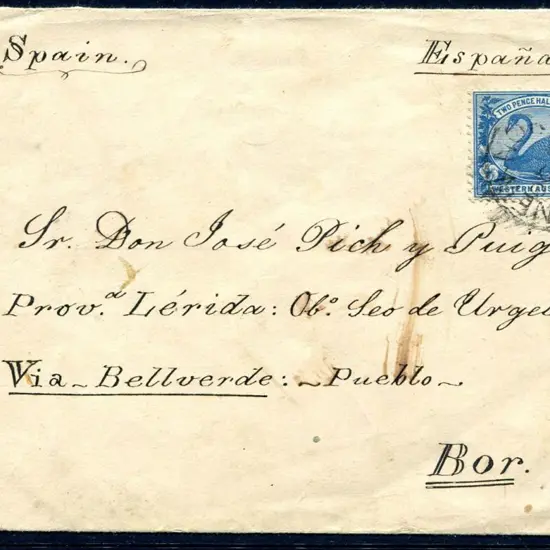 Spain. España
TWO PENCE HAL
WESTERN AUS
Sr. Don José Pich y Puig
Prov.ª Lérida: Ob.º Seo de Urgel
Via - Bellverde: - Pueblo -
Bor.